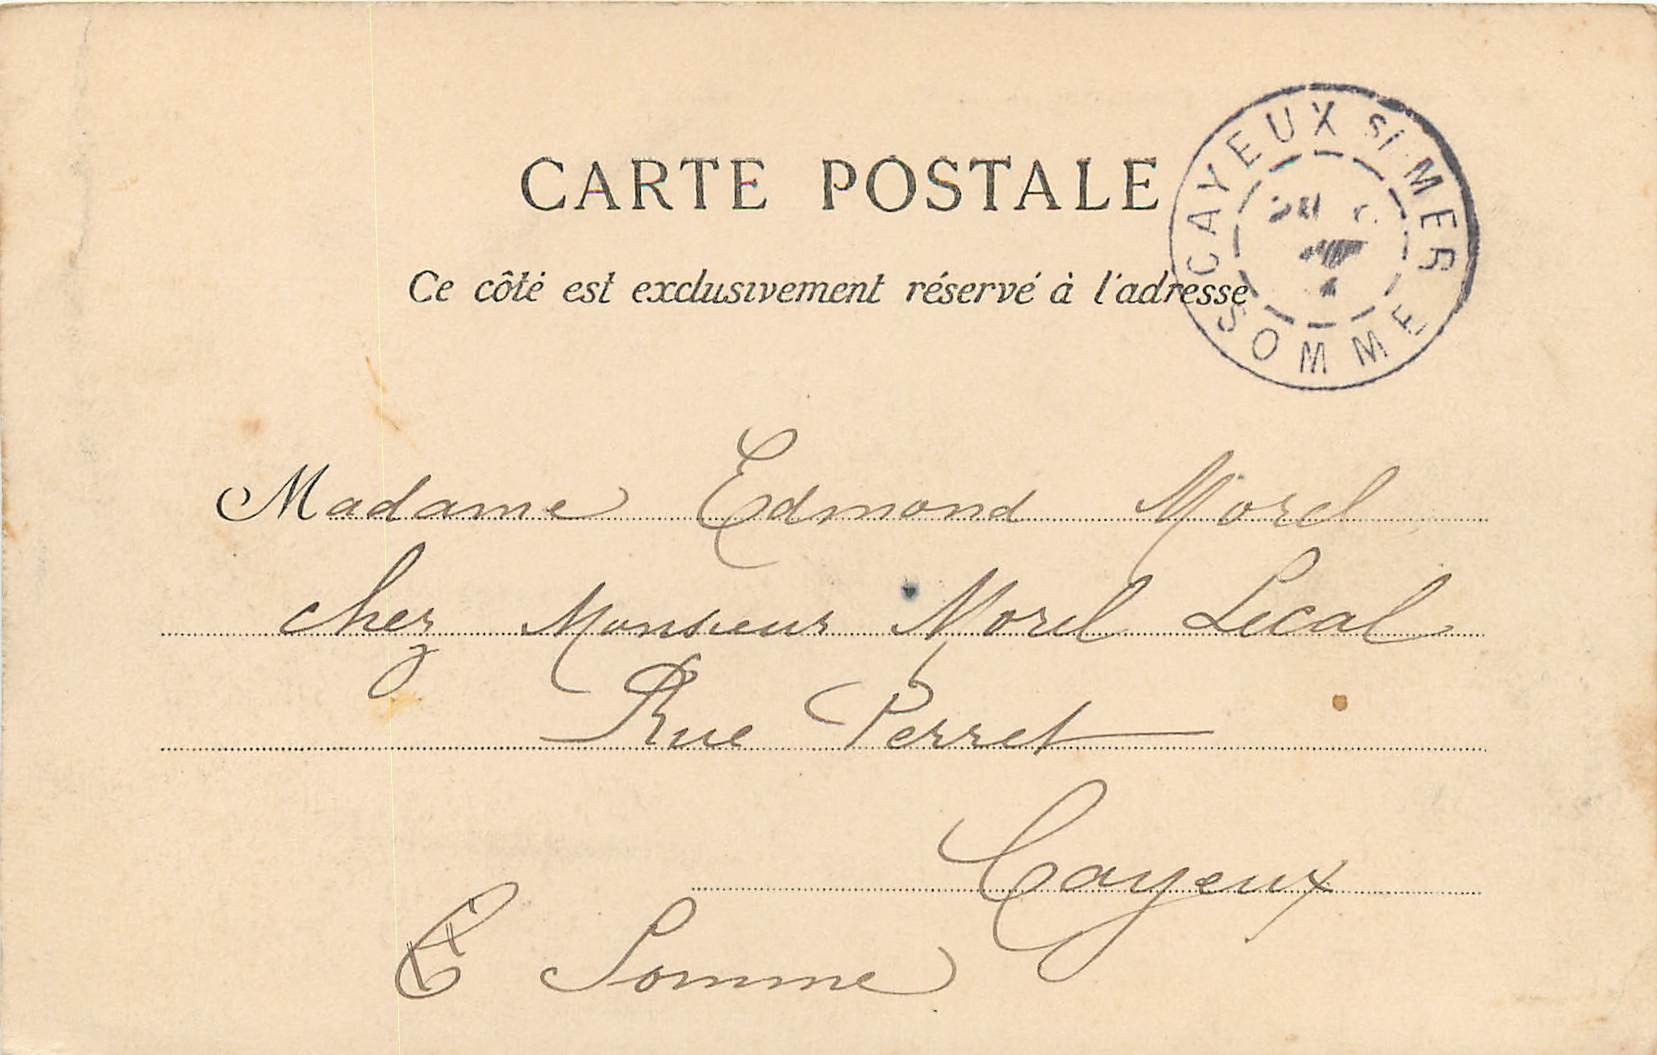 CARTE POSTALE
CAYEUX S/ MER
SOMME
Ce côté est exclusivement réservé à l'adresse
Madame Edmond Morel
chez Monsieur Morel Lecal
Rue Perret
Cayeux
Somme